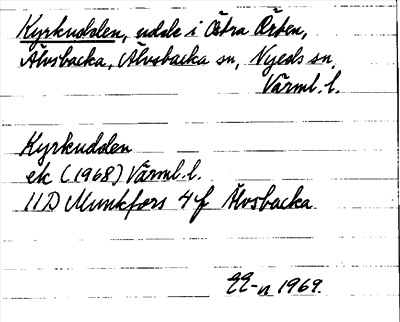 Kyrkudden, udde i Östra Örten,
Älvsbacka, Älvsbacka sn, Nyeds sn,
Värml. l.
Kyrkudden
ek (1968) Värml. l.
11D Munkfors 4f Älvsbacka
1969.